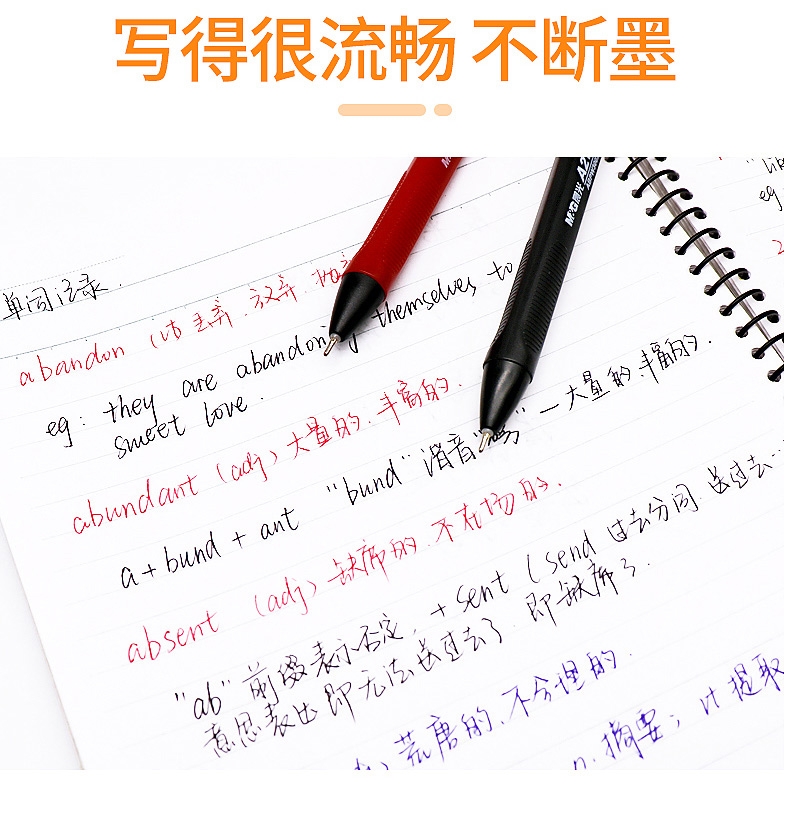 写得很流畅 不断墨
M&G晨光 A2
单词记录.
abandon (vt 丢弃.放弃.抛弃
eg: they are abandoning themselves to
sweet love.
abundant (adj) 大量的.丰富的.
a+bund + ant "bund" 谐音" "—大量的.丰富的.
absent (adj) 缺席的.不在场的.
"ab" 前缀表示否定, + sent (send 过去分词.送过去…
意思表达即无法送过去了.即缺席了.
荒唐的.不合理的.
n.摘要; vt 提取
eg